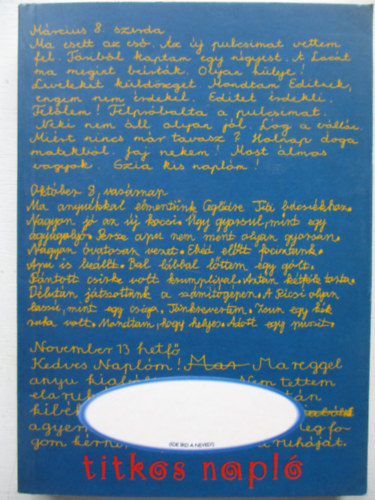 Március 8. szerda
Ma esett az eső. Az új pulcsimat vettem
fel. Tóniból kaptam egy négyest. A Lacit
ma megint beírták. Olyan hülye!
Leveleket küldözget. Mondtam Editnek,
engem nem érdekel. Editet érdekli.
Tőlem! Felpróbálta a pulcsimat.
Neki nem áll olyan jól. Lóg a válla.
Miért nincs már tavasz? Holnap doga
matekból. Jaj nekem! Most álmos
vagyok. Szia kis naplóm!
Október 8, vasárnap
Ma anyuékkal elmentünk Ceglédre Juli bácsiékhoz.
Nagyon jó az új kocsi. Úgy gyorsul, mint egy
ágyúgolyó. Persze apu nem ment olyan gyorsan.
Nagyon óvatosan vezet. Ebéd előtt fociztunk.
Apu is beállt. Bal lábbal lőttem egy gólt.
Rántott csirke volt krumplival. Aztán kétféle torta.
Délután játszottunk a számítógépen. A Pici olyan
lassú, mint egy csiga. Tönkrevertem. Zsun egy kék
ruha volt. Mondtam, hogy helyes. Adott egy puszit.
November 13 hetfő
Kedves Naplóm! Mar Mareggel
anyu kiabált Nem tettem
el a ruh tán
kibék
agyem meg fo-
gom kérni ruháját.
(IDE ÍRD A NEVED!)
titkos napló